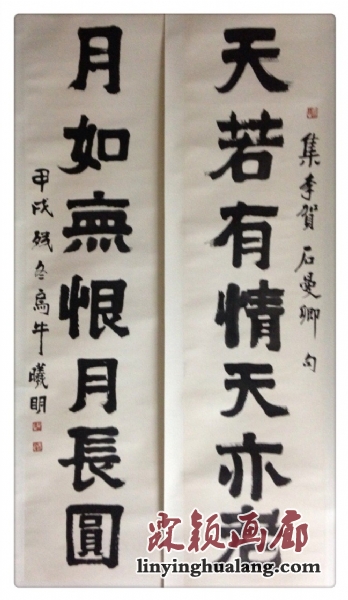 天若有情天亦老
集李賀石曼卿句
月如無恨月長圓
甲戌殘冬烏牛曦明
霖颖画廊
linyinghualang.com